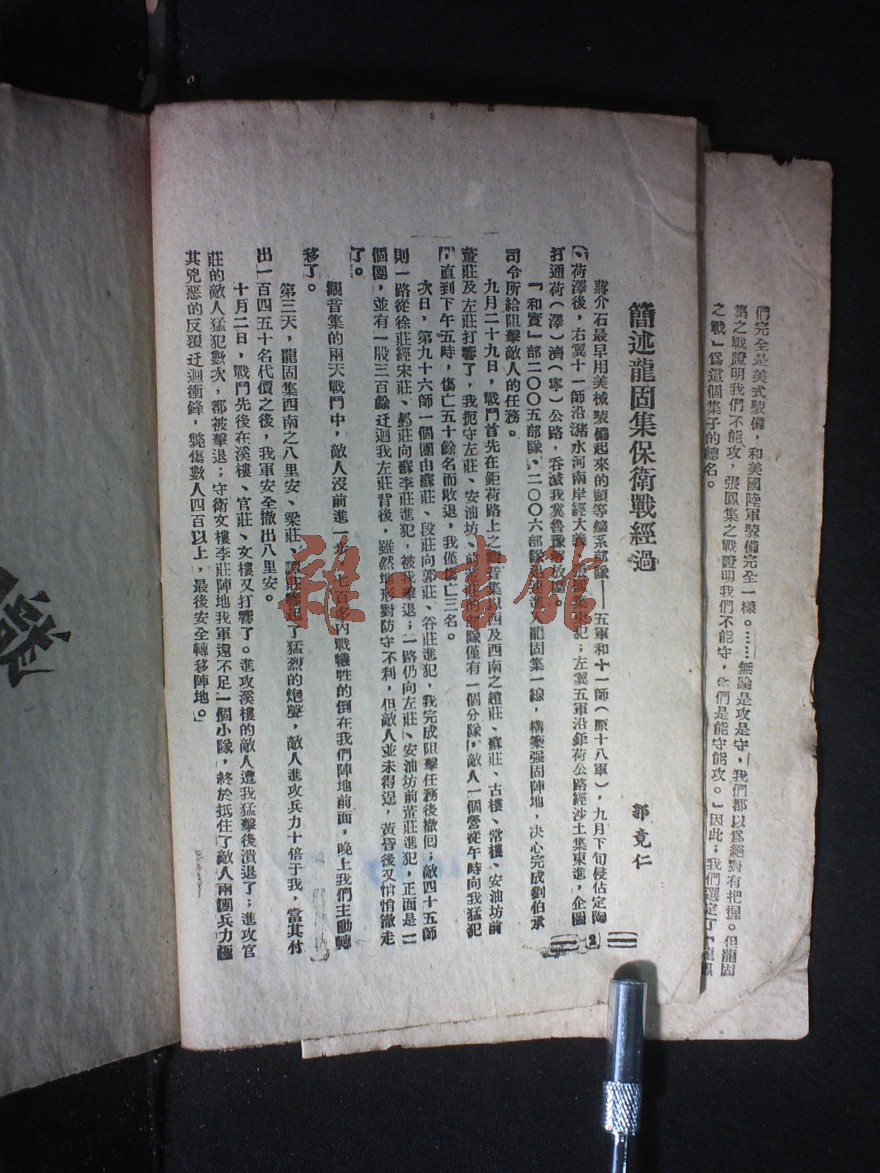 們完全是美式裝備，和美國陸軍裝備完全一樣。……無論是攻是守，我們都以爲絕對有把握。但龍固
集之戰證明我們不能攻，張鳳集之戰證明我們不能守，你們是能守能攻。」因此；我們選定了「龍鳳
之戰」爲這個集子的總名。
簡述龍固集保衛戰經過
郭竟仁
2
蔣介石最早用美械裝備起來的頭等嫡系部隊——五軍和十一師（原十八軍），九月下旬侵佔定陶
、荷澤後，右翼十一師沿濉水河南岸經大義
犯；左翼五軍沿鉅荷公路經沙土集東進，企圖
打通荷（澤）濟（寧）公路，吞滅我冀魯豫
放區。
「和實」部二〇〇五部隊、二〇〇六部隊
龍固集一線，構築强固陣地，决心完成劉伯承
司令所給阻擊敵人的任務。
九月二十九日，戰鬥首先在鉅荷路上之觀音集以西及西南之趙莊、蘇莊、古樓、常樓、安油坊前
董莊及左莊打響了，我扼守左莊、安油坊、前董莊的部隊僅有一個分隊，敵人一個營從午時向我猛犯
，直到下午五時，傷亡五十餘名而敗退，我僅傷亡三名。
次日，第九十六師一個團由蘇莊、段莊向郭莊、谷莊進犯，我完成阻擊任務後撤回；敵四十五師
則一路從徐莊經宋莊、郭莊向蘇李莊進犯，被我擊退；一路仍向左莊、安油坊前董莊進犯，正面是二
個團，並有一股三百餘迂迴我左莊背後，雖然地形對防守不利，但敵人並未得逞，黃昏後又悄悄撤走
了。
觀音集的兩天戰鬥中，敵人沒前進一步，七百多內戰犧牲的倒在我們陣地前面，晚上我們主動轉
移了。
第三天，龍固集西南之八里安、梁莊、
莊響起了猛烈的炮聲，敵人進攻兵力十倍于我，當其付
出一百四五十名代價之後，我軍安全撤出八里安。
十月二日，戰鬥先後在溪樓、官莊、文樓又打響了。進攻溪樓的敵人遭我猛擊後潰退了；進攻官
莊的敵人猛犯數次，都被擊退；守衛文樓李莊陣地我軍還不足一個小隊，終於抵住了敵人兩團兵力極
其兇惡的反覆迂迴衝鋒，斃傷敵人四百以上，最後安全轉移陣地。
雜·書館